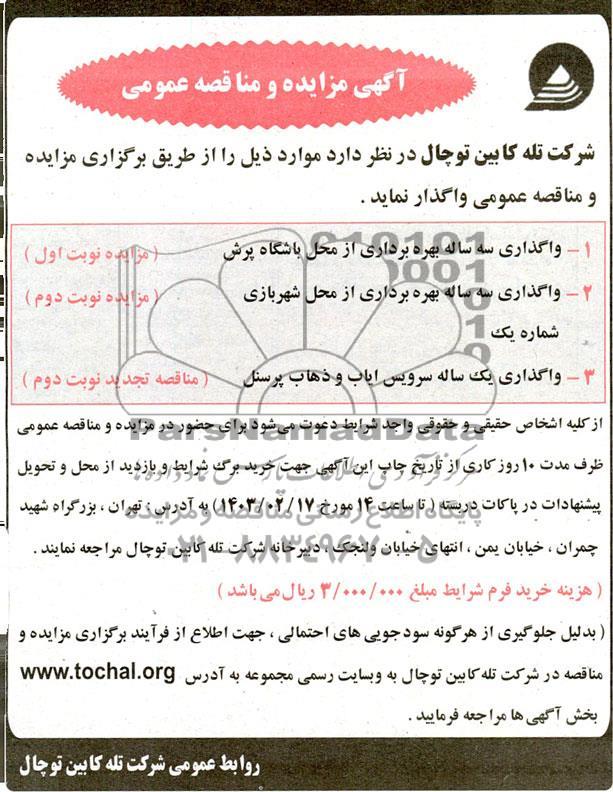 آگهی مزایده و مناقصه عمومی
شرکت تله کابین توچال در نظر دارد موارد ذیل را از طریق برگزاری مزایده
و مناقصه عمومی واگذار نماید .
۱ - واگذاری سه ساله بهره برداری از محل باشگاه پرش ( مزایده نوبت اول )
۲ - واگذاری سه ساله بهره برداری از محل شهربازی ( مزایده نوبت دوم )
شماره یک
۳ - واگذاری یک ساله سرویس ایاب و ذهاب پرسنل ( مناقصه تجدید نوبت دوم )
از کلیه اشخاص حقیقی و حقوقی واجد شرایط دعوت می شود برای حضور در مزایده و مناقصه عمومی
ظرف مدت ۱۰ روز کاری از تاریخ چاپ این آگهی جهت خرید برگ شرایط و بازدید از محل و تحویل
پیشنهادات در پاکات دربسته ( تا ساعت ۱۴ مورخ ۱۴۰۳/۰۲/۱۷ ) به آدرس : تهران ، بزرگراه شهید
چمران ، خیابان یمن ، انتهای خیابان ولنجک ، دبیرخانه شرکت تله کابین توچال مراجعه نمایند .
( هزینه خرید فرم شرایط مبلغ ۳/۰۰۰/۰۰۰ ریال می باشد )
( بدلیل جلوگیری از هرگونه سودجویی های احتمالی ، جهت اطلاع از فرآیند برگزاری مزایده و
مناقصه در شرکت تله کابین توچال به وبسایت رسمی مجموعه به آدرس www.tochal.org
بخش آگهی ها مراجعه فرمایید .
روابط عمومی شرکت تله کابین توچال
ParsNamadData
پایگاه اطلاع رسانی مناقصه و مزایده
۰۲۱-۸۸۳۴۹۶۷۰-۵